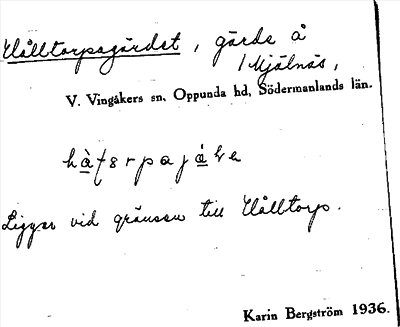 Hålltorpsgärdet, gärde å
/ Mjälnäs,
V. Vingåkers sn, Oppunda hd, Södermanlands län.
Ligger vid gränsen till Hålltorp.
Karin Bergström 1936.